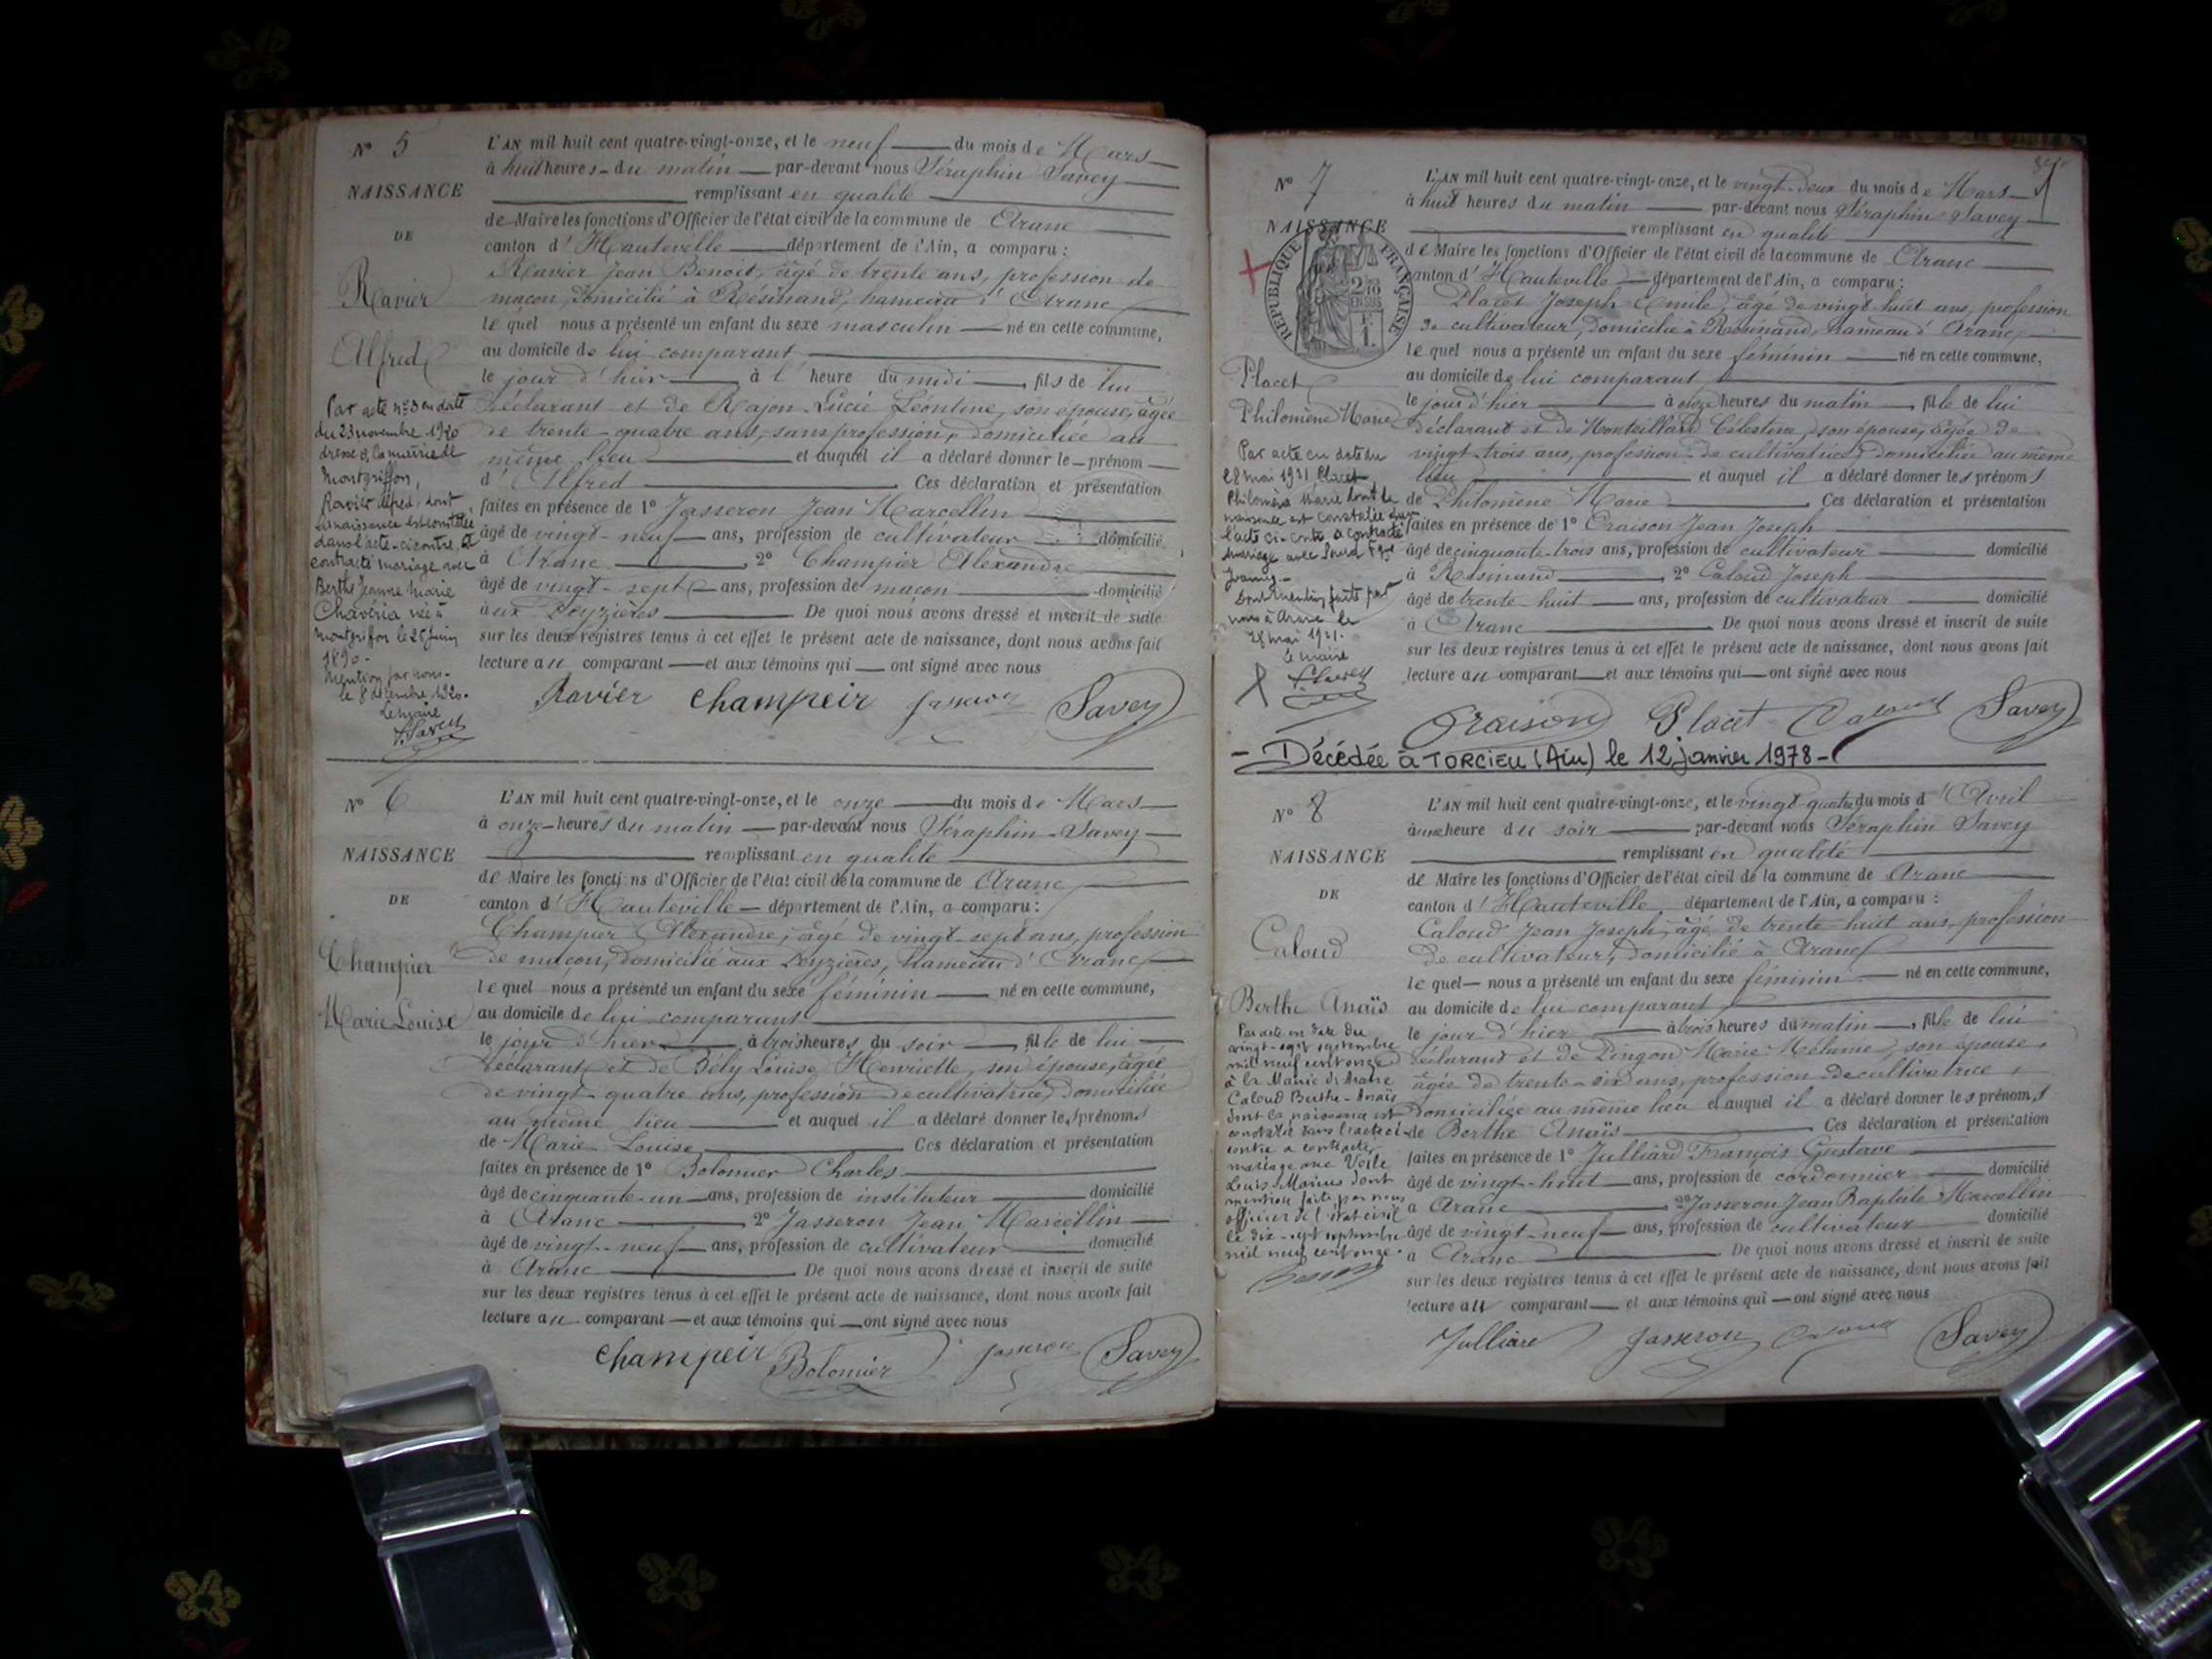 N° 5
NAISSANCE
DE
Ravier
Alfred
Par acte n° 3 en date
du 23 novembre 1920
dressé à la mairie de
Montgriffon,
Ravier Alfred, dont
la naissance est constatée
dans l'acte ci-contre, a
contracté mariage avec
Berthe Jeanne Marie
Chavéria née à
Montgriffon le 25 juin
1890.
Mention par nous
le 8 décembre 1920.
Le Maire
Savey
L'AN mil huit cent quatre-vingt-onze, et le neuf du mois de Mars
à huit heures du matin par-devant nous Séraphin Savey
remplissant en qualité
de Maire les fonctions d'Officier de l'état civil de la commune de Aranc
canton d'Hauteville département de l'Ain, a comparu :
Ravier Jean Benoit, âgé de trente ans, profession de
maçon, domicilié à Résinand, hameau d'Aranc
lequel nous a présenté un enfant du sexe masculin né en cette commune,
au domicile de lui comparant
le jour d'hier à l'heure du midi, fils de lui
déclarant et de Rajon Lucie Léontine, son épouse, âgée
de trente-quatre ans, sans profession, domiciliée au
même lieu et auquel il a déclaré donner le prénom
d'Alfred Ces déclaration et présentation
faites en présence de 1° Jasseron Jean Marcellin
âgé de vingt-neuf ans, profession de cultivateur domicilié
à Aranc, 2° Champier Alexandre
âgé de vingt-sept ans, profession de maçon domicilié
aux Peyzières De quoi nous avons dressé et inscrit de suite
sur les deux registres tenus à cet effet le présent acte de naissance, dont nous avons fait
lecture au comparant et aux témoins qui ont signé avec nous
Ravier Champeir Jasseron Savey
N° 6
NAISSANCE
DE
Champier
Marie Louise
L'AN mil huit cent quatre-vingt-onze, et le onze du mois de Mars
à onze heures du matin par-devant nous Séraphin Savey
remplissant en qualité
de Maire les fonctions d'Officier de l'état civil de la commune de Aranc
canton d'Hauteville département de l'Ain, a comparu :
Champier Alexandre, âgé de vingt-sept ans, profession
de maçon, domicilié aux Peyzières, hameau d'Aranc
lequel nous a présenté un enfant du sexe féminin né en cette commune,
au domicile de lui comparant
le jour d'hier à trois heures du soir, fille de lui
déclarant et de Bély Louise Henriette, son épouse, âgée
de vingt-quatre ans, profession de cultivatrice, domiciliée
au même lieu et auquel il a déclaré donner les prénoms
de Marie Louise Ces déclaration et présentation
faites en présence de 1° Bolomier Charles
âgé de cinquante-un ans, profession de instituteur domicilié
à Aranc, 2° Jasseron Jean Marcellin
âgé de vingt-neuf ans, profession de cultivateur domicilié
à Aranc De quoi nous avons dressé et inscrit de suite
sur les deux registres tenus à cet effet le présent acte de naissance, dont nous avons fait
lecture au comparant et aux témoins qui ont signé avec nous
Champeir Bolomier Jasseron Savey
N° 7
NAISSANCE
RÉPUBLIQUE FRANÇAISE
2/10 EN SUS
Placet
Philomène Marie
Par acte en date du
28 mai 1921, Placet
Philomène Marie dont la
naissance est constatée dans
l'acte ci-contre a contracté
mariage avec
Dont mention faite par
nous à Aranc le
28 mai 1921.
Le Maire
Savey
L'AN mil huit cent quatre-vingt-onze, et le vingt-deux du mois de Mars
à huit heures du matin par-devant nous Séraphin Savey
remplissant en qualité
de Maire les fonctions d'Officier de l'état civil de la commune de Aranc
canton d'Hauteville département de l'Ain, a comparu :
Placet Joseph Emile, âgé de vingt-huit ans, profession
de cultivateur, domicilié à Résinand, hameau d'Aranc
lequel nous a présenté un enfant du sexe féminin né en cette commune,
au domicile de lui comparant
le jour d'hier à onze heures du matin, fille de lui
déclarant et de Monteillard Célestine, son épouse, âgée de
vingt-trois ans, profession de cultivatrice, domiciliée au même
lieu et auquel il a déclaré donner les prénoms
de Philomène Marie Ces déclaration et présentation
faites en présence de 1° Craison Jean Joseph
âgé de cinquante-trois ans, profession de cultivateur domicilié
à Résinand, 2° Caloud Joseph
âgé de trente-huit ans, profession de cultivateur domicilié
à Aranc De quoi nous avons dressé et inscrit de suite
sur les deux registres tenus à cet effet le présent acte de naissance, dont nous avons fait
lecture au comparant et aux témoins qui ont signé avec nous
Craison Placet Caloud Savey
- Décédée à TORCIEU (Ain) le 12 janvier 1978 -
N° 8
NAISSANCE
DE
Caloud
Berthe Anaïs
Par acte en date du
vingt-sept septembre
mil neuf cent onze
à la Mairie de Aranc
Caloud Berthe-Anaïs
dont la naissance est
constatée dans l'acte ci-
contre a contracté
mariage avec
Louis Marius dont
mention faite par nous
officier de l'état civil
le dix-sept septembre
mil neuf cent onze.
L'AN mil huit cent quatre-vingt-onze, et le vingt-quatre du mois d'Avril
à une heure du soir par-devant nous Séraphin Savey
remplissant en qualité
de Maire les fonctions d'Officier de l'état civil de la commune de Aranc
canton d'Hauteville département de l'Ain, a comparu :
Caloud Jean Joseph, âgé de trente-huit ans, profession
de cultivateur, domicilié à Aranc
lequel nous a présenté un enfant du sexe féminin né en cette commune,
au domicile de lui comparant
le jour d'hier à trois heures du matin, fille de lui
déclarant et de Pingon Marie Mélanie, son épouse,
âgée de trente-six ans, profession de cultivatrice,
domiciliée au même lieu et auquel il a déclaré donner les prénoms
de Berthe Anaïs Ces déclaration et présentation
faites en présence de 1° Julliard François Gustave
âgé de vingt-huit ans, profession de cordonnier domicilié
à Aranc, 2° Jasseron Jean Baptiste Marcellin
âgé de vingt-neuf ans, profession de cultivateur domicilié
à Aranc De quoi nous avons dressé et inscrit de suite
sur les deux registres tenus à cet effet le présent acte de naissance, dont nous avons fait
lecture au comparant et aux témoins qui ont signé avec nous
Julliard Jasseron Caloud Savey